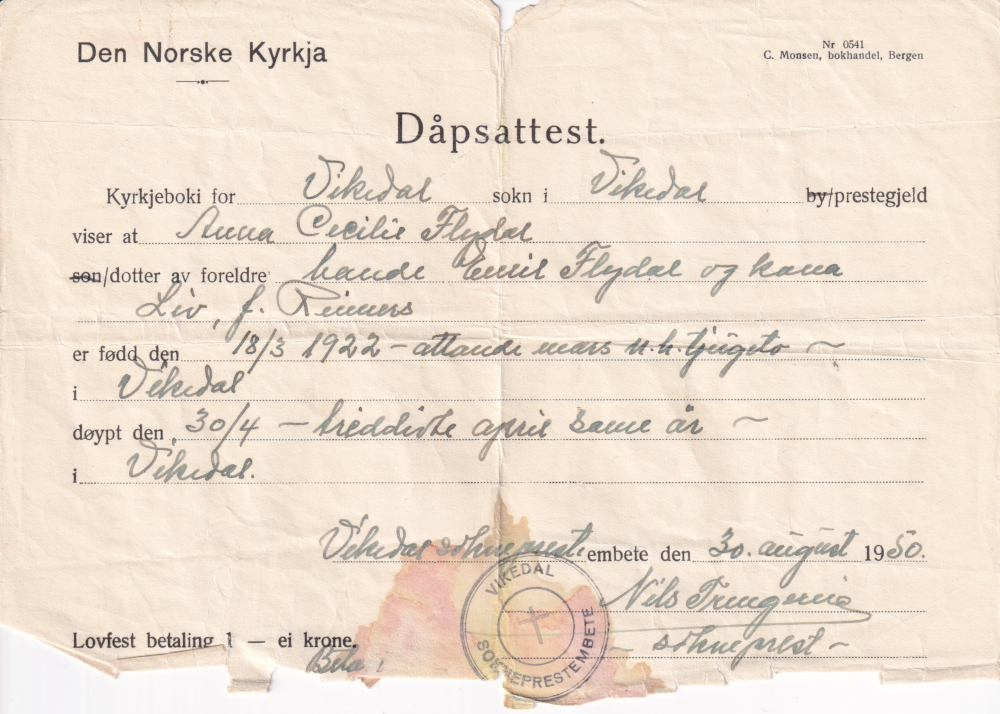 Den Norske Kyrkja
Nr 0541
C. Monsen, bokhandel, Bergen
Dåpsattest.
Kyrkjeboki for Vikedal sokn i Vikedal by/prestegjeld
viser at Anna Cecilie Flydal
son/dotter av foreldre bande Emil Flydal og kona
Liv, f. Reimers
er fødd den 18/3 1922 – attande mars n.h. tjugeto ~
i Vikedal
døypt den 30/4 – treddivte april same år ~
i Vikedal.
Vikedal sokneprestembete den 30. august 1950.
Nils
Lovfest betaling 1 — ei krone.
sokneprest –
VIKEDAL
SOKNEPRESTEMBETE